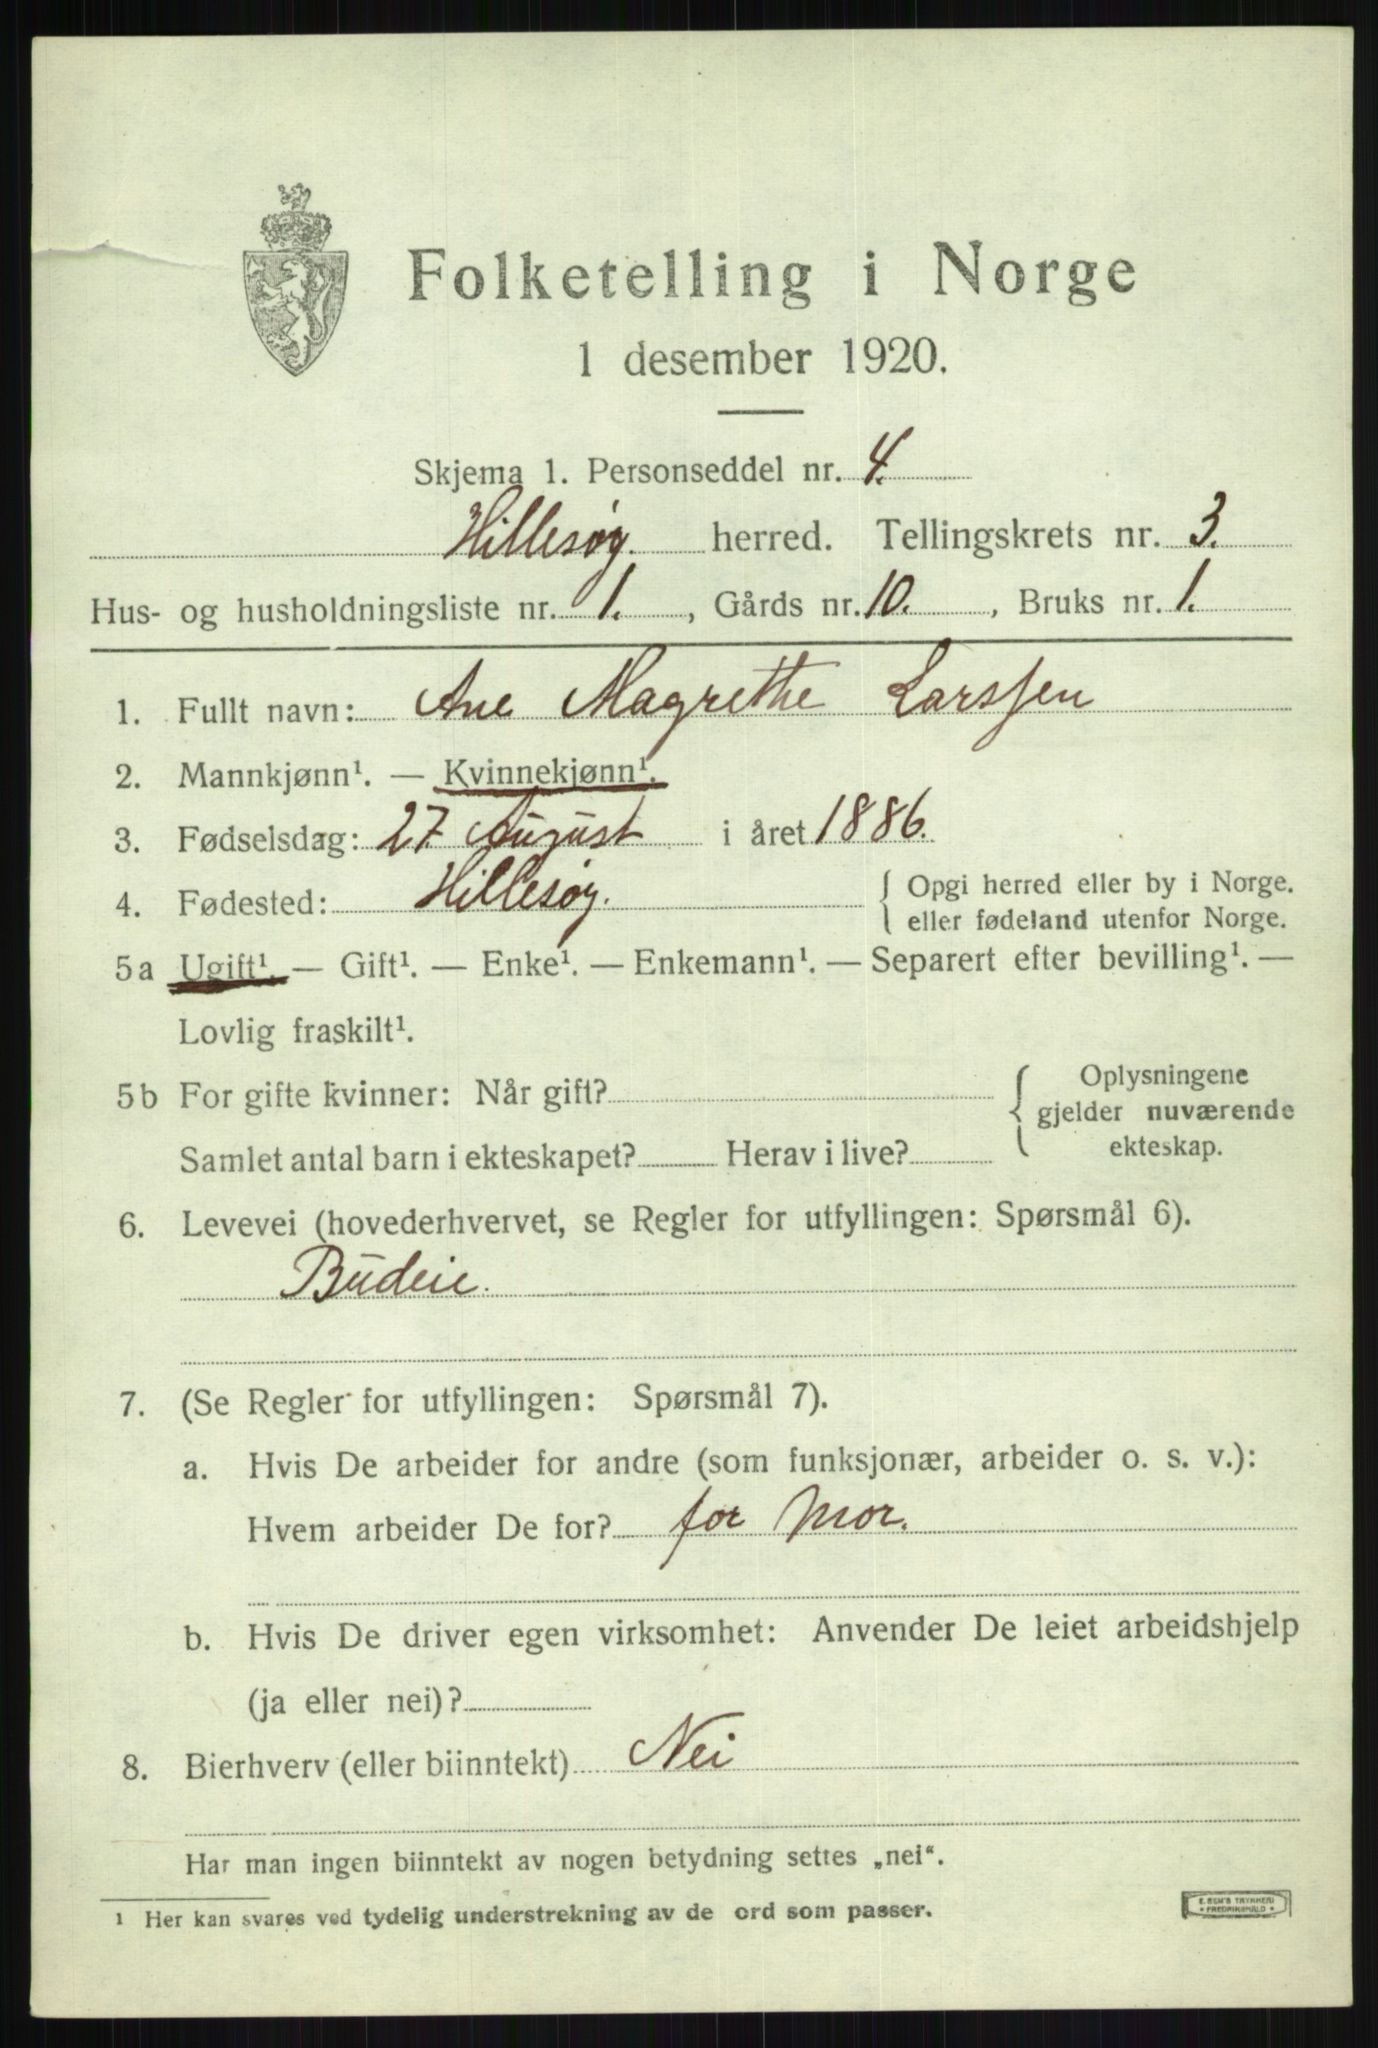 Folketelling i Norge
1 desember 1920.
Skjema 1. Personseddel nr. 4.
Hillesøy. herred. Tellingskrets nr. 3.
Hus- og husholdningsliste nr. 1. , Gårds nr. 10. , Bruks nr. 1.
1. Fullt navn: Ane Magrethe Larssen
2. Mannkjønn¹. — Kvinnekjønn¹.
3. Fødselsdag: 27 August i året 1886.
4. Fødested: Hillesøy. { Opgi herred eller by i Norge.
eller fødeland utenfor Norge.
5a Ugift¹. — Gift¹. — Enke¹. — Enkemann¹. — Separert efter bevilling¹. —
Lovlig fraskilt¹.
5b For gifte kvinner: Når gift? { Oplysningene
gjelder nuværende
Samlet antal barn i ekteskapet? Herav i live? ekteskap.
6. Levevei (hovederhvervet, se Regler for utfyllingen: Spørsmål 6).
Budeie.
7. (Se Regler for utfyllingen: Spørsmål 7).
a. Hvis De arbeider for andre (som funksjonær, arbeider o. s. v.):
Hvem arbeider De for? for Mor.
b. Hvis De driver egen virksomhet: Anvender De leiet arbeidshjelp
(ja eller nei)?
8. Bierhverv (eller biinntekt) Nei
Har man ingen biinntekt av nogen betydning settes „nei“.
1 Her kan svares ved tydelig understrekning av de ord som passer.
E. SEM'S TRYKKERI
* FREDRIKSHALD *